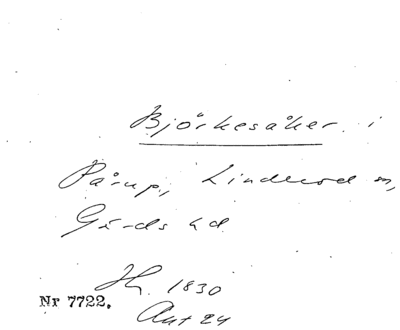 Björkesåker i
Pårup, Linderöd sn,
Gärds hd
Hy. 1830
Aut 24
Nr 7722.